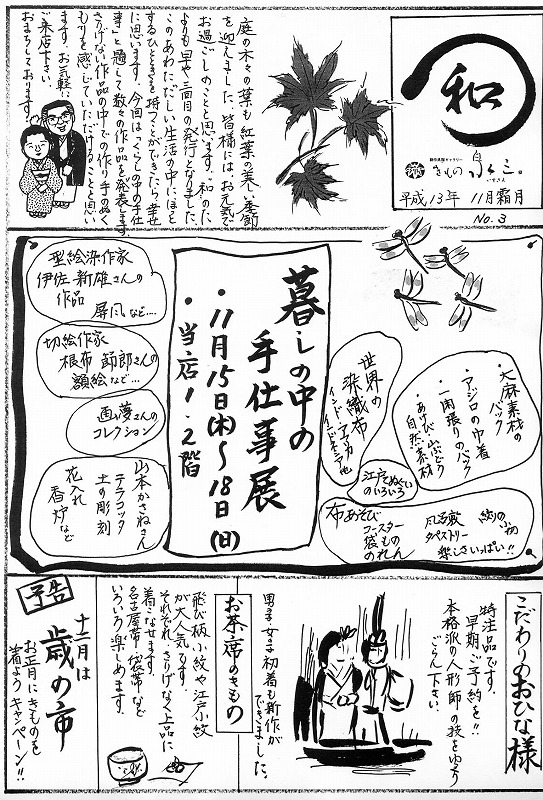 和
きもの
平成13年 11月霜月
No.3
庭の木々の葉も紅葉の美しい季節
を迎えました。皆様にはお元気で
お過ごしのことと思います。和のたより
も早や三回目の発行となりました。
このあわただしい生活の中にほっと
するひとときを持つことができたら幸せ
に思います。今回は「くらしの中の手仕
事」と題して数々の作品を発表します。
さりげない作品の中での作り手のぬく
もりを感じていただけることと思い
ます。お気軽に
ご来店下さい。
おまちしております。
暮しの中の
手仕事展
・11月15日(木)〜18日(日)
・当店1.2階
型絵染作家
伊佐 新雄さんの
作品
屏風など…
切絵作家
根布 節郎さんの
額絵など…
画夢さんの
コレクション
山本かさねさん
テラコッタ
土の彫刻
花入れ
香炉など
世界の
染織布
インド・アフリカ他
インドネシア
大麻素材の
バック
・アジロの巾着
・一閑張りのバック
・あけび・山ぶどう
自然素材
江戸てぬぐい
のいろいろ
布あそび
コースター
袋もの
のれん
風呂敷
タペストリー
絞りの小物
楽しさいっぱい!!
こだわりのおひな様
特注品です。
早期ご予約を!!
本格派の人形師の技をゆっくり
ごらん下さい。
男子、女子初着も新作が
できました。
お茶席のきもの
飛び柄小紋や江戸小紋
が大人気です。
それぞれ、さりげなく上品に
着こなせます。
名古屋帯・袋帯など
いろいろ楽しめます。
予告
十二月は
歳の市
お正月にきものを
着ようキャンペーン!!